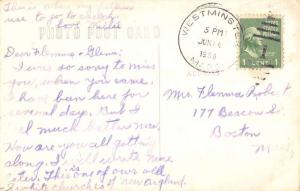 This is where my
use to go to church
Love
PHOTO POST CARD
WESTMINSTER
5 PM
JUN
MASS
1 CENT 1
Dear Flemma + Glenn:
I was so sorry to miss
you, when you came.
I have been here for
several days. But I
much better now.
How are you all getting
along. I will write more
later. This is one of our old
white church's of New England.
Mrs. Flemma Robert
177 Beacon St
Boston
M